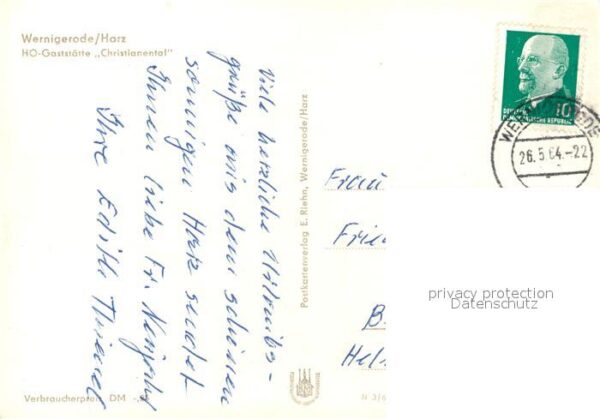 Wernigerode/Harz
HO-Gaststätte „Christianental"
Viele herzliche Urlaubs-
grüße aus dem schönen
sonnigen Harz sendet
Ihnen liebe Fr.
Ihre Edith
Verbraucherpreis DM
Postkartenverlag E. Riehn, Wernigerode/Harz
DEUTSCHE
DEMOKRATISCHE REPUBLIK
10
26.5.64.-22
Frau
privacy protection
Datenschutz
N 3/6